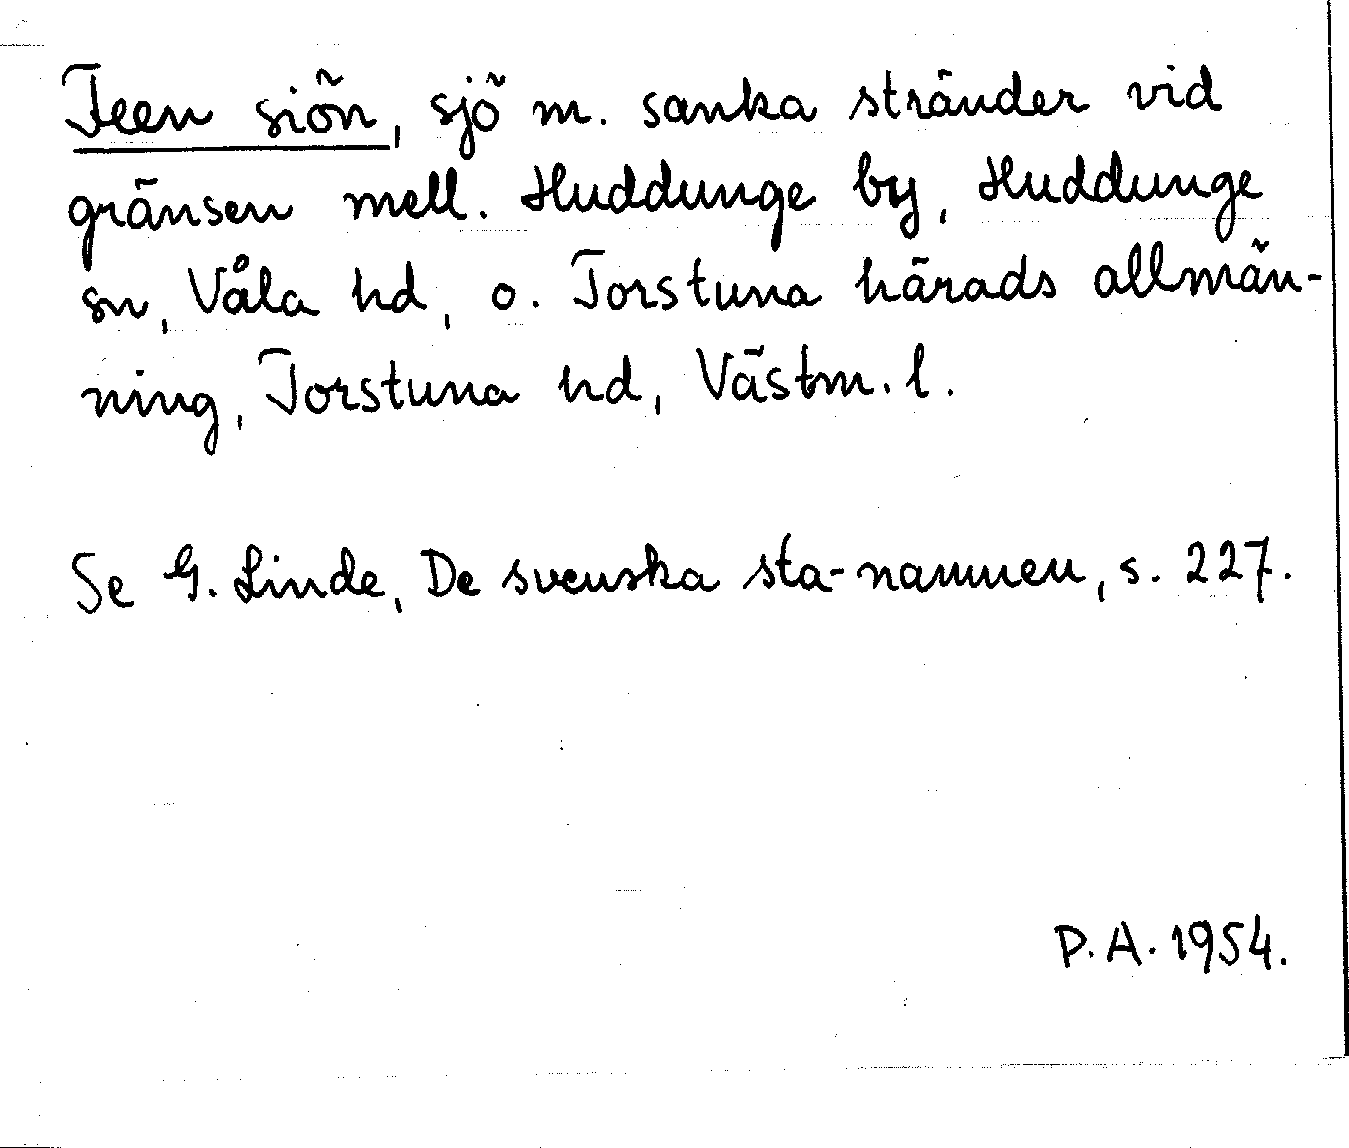 Teen siön, sjö m. sanka stränder vid
gränsen mell. Huddunge by, Huddunge
sn, Våla hd, o. Torstuna härads allmän-
ning, Torstuna hd, Västm. l.
Se G. Linde, De svenska sta-namnen, s. 227.
P. A. 1954.